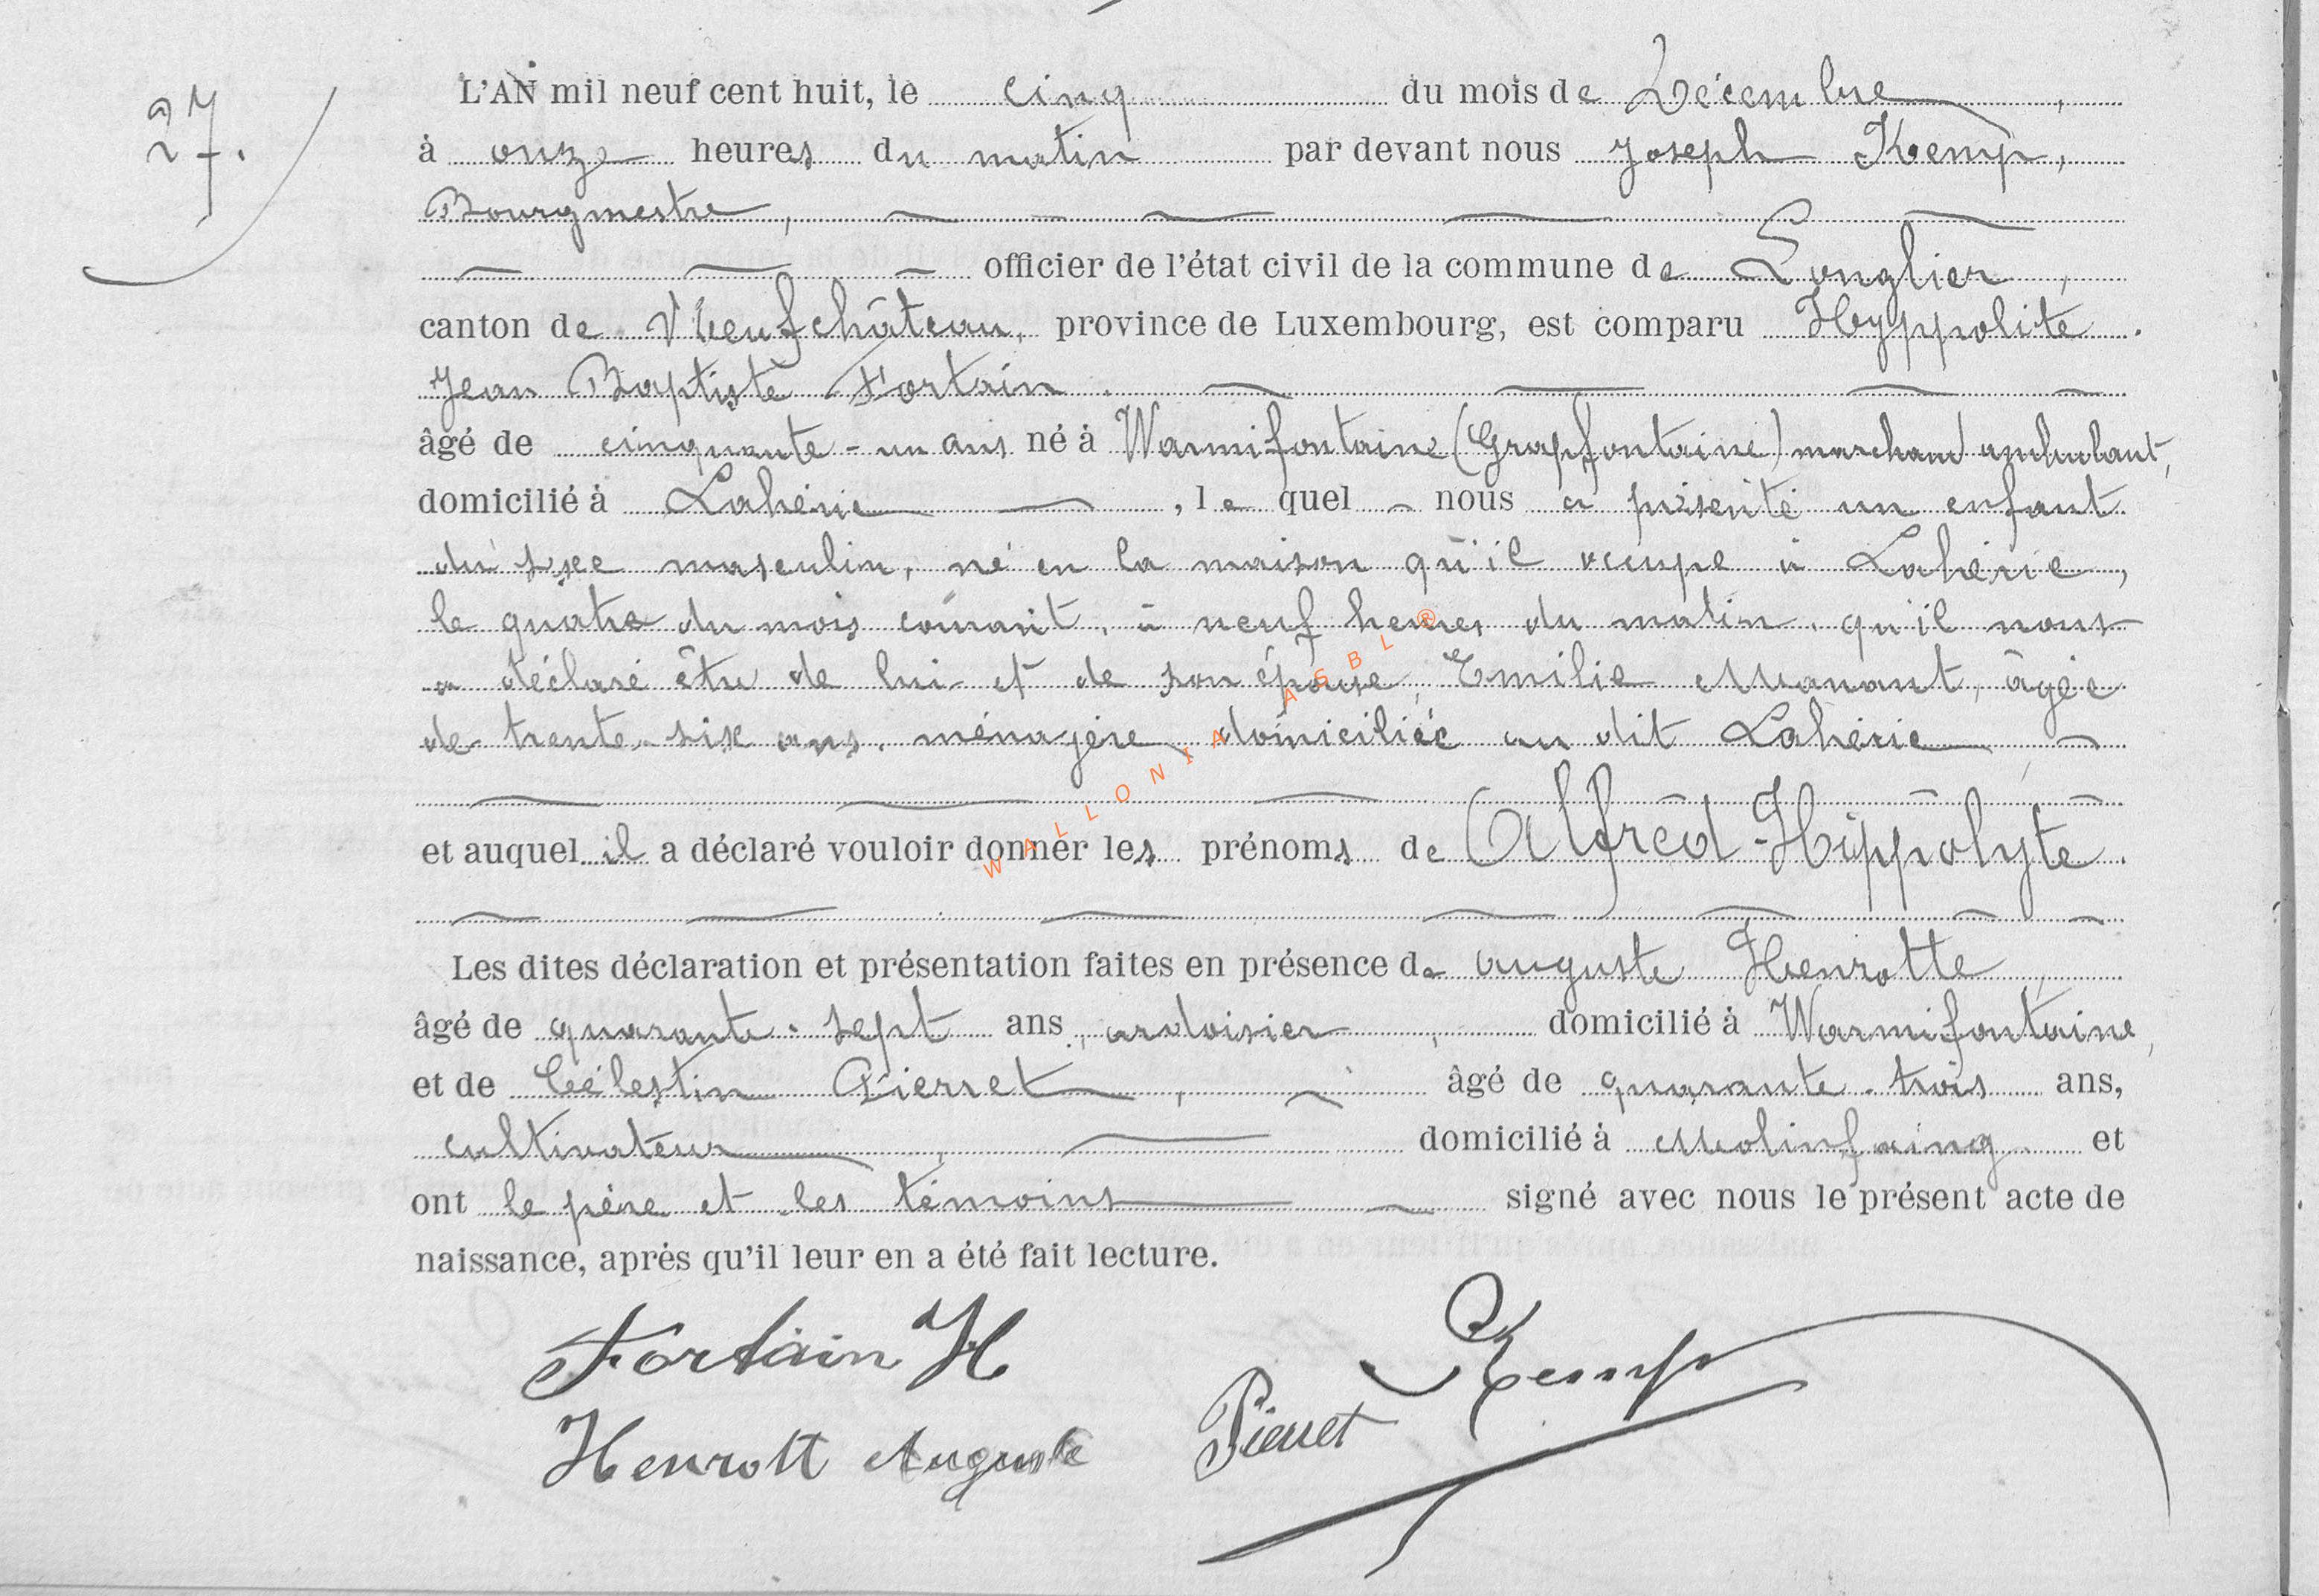 27.
L'AN mil neuf cent huit, le cinq du mois de Décembre,
à onze heures du matin par devant nous Joseph Kemp,
Bourgmestre,
officier de l'état civil de la commune de Longlier,
canton de Neufchâteau, province de Luxembourg, est comparu Hyppolite
Jean Baptiste Fortain.
âgé de cinquante-un ans né à Warmifontaine (Grapfontaine) marchand ambulant,
domicilié à Lahérie, le quel nous a présenté un enfant
du sexe masculin, né en la maison qu'il occupe à Lahérie,
le quatre du mois courant, à neuf heures du matin, qu'il nous
a déclaré être de lui et de son épouse, Emilie Manant, âgée
de trente-six ans, ménagère, domiciliée au dit Lahérie,
et auquel il a déclaré vouloir donner les prénoms de Alfred-Hippolyte.
Les dites déclaration et présentation faites en présence de Auguste Henrotte,
âgé de quarante-sept ans, ardoisier, domicilié à Warmifontaine,
et de Célestin Pierret, âgé de quarante-trois ans,
cultivateur, domicilié à Molinfaing et
ont le père et les témoins signé avec nous le présent acte de
naissance, après qu'il leur en a été fait lecture.
Fortain H
Kemp
Henrott Auguste
Pierret
WALLONIA ASBL ®